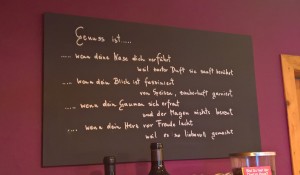 Genuss ist.....
.... wenn deine Nase dich verführt
weil zarter Duft sie sanft berührt
.... wenn dein Blick ist fasziniert
von Speisen, zauberhaft garniert.
.... wenn dein Gaumen sich erfreut
und der Magen nichts bereut
.... wenn dein Herz vor Freude lacht
weil es so liebevoll gemacht